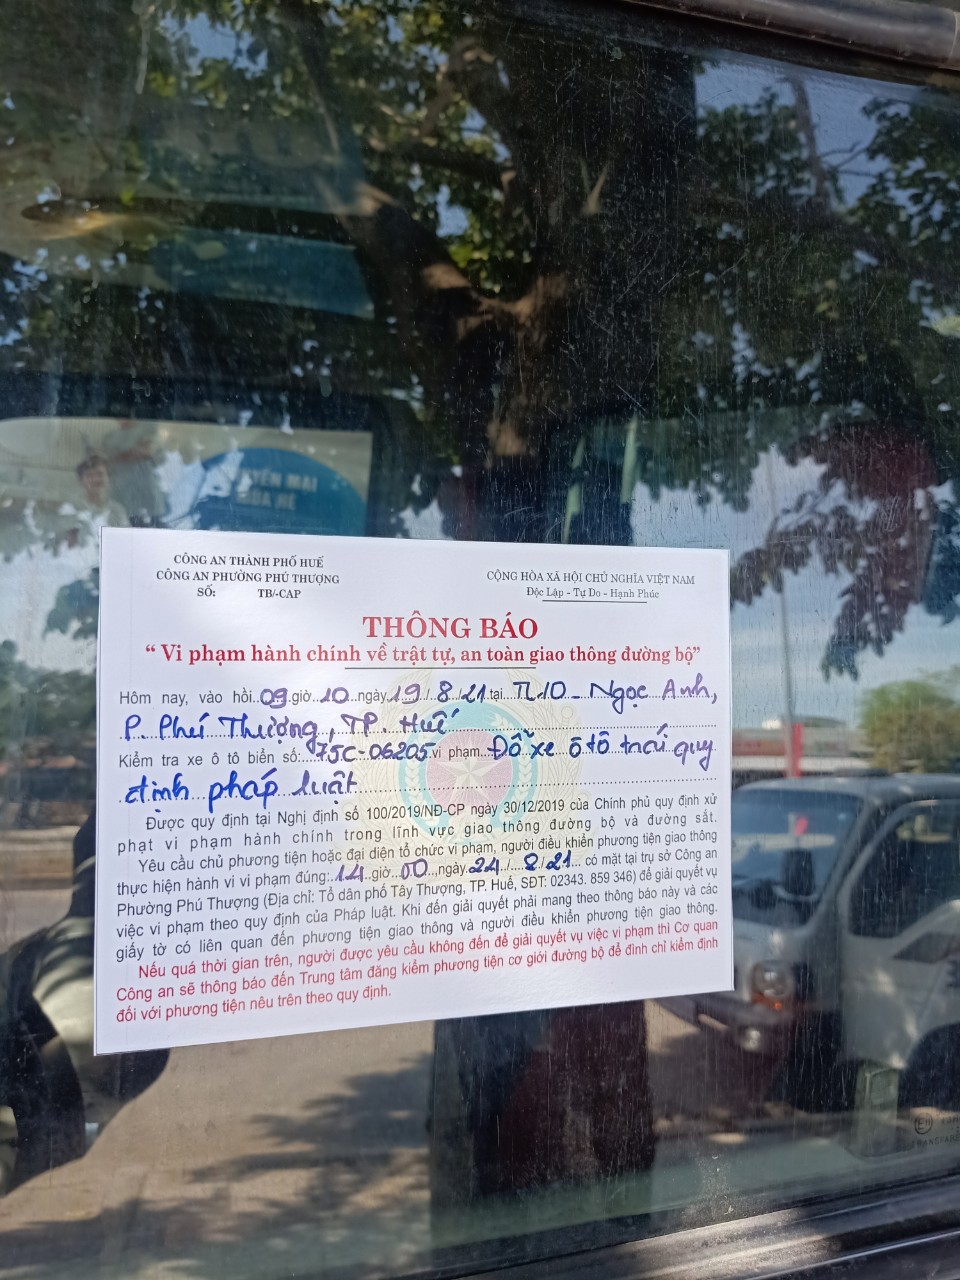 CÔNG AN THÀNH PHỐ HUẾ
CÔNG AN PHƯỜNG PHÚ THƯỢNG
SỐ: TB/-CAP
CỘNG HÒA XÃ HỘI CHỦ NGHĨA VIỆT NAM
Độc Lập - Tự Do - Hạnh Phúc
THÔNG BÁO
“ Vi phạm hành chính về trật tự, an toàn giao thông đường bộ”
Hôm nay, vào hồi 09 giờ 10 ngày 19 / 8 / 21 tại TL10 - Ngọc Anh,
P. Phú Thượng, TP. Huế
Kiểm tra xe ô tô biển số: 75C-06205 vi phạm Đỗ xe ô tô trái quy
định pháp luật
Được quy định tại Nghị định số 100/2019/NĐ-CP ngày 30/12/2019 của Chính phủ quy định xử
phạt vi phạm hành chính trong lĩnh vực giao thông đường bộ và đường sắt.
Yêu cầu chủ phương tiện hoặc đại diện tổ chức vi phạm, người điều khiển phương tiện giao thông
thực hiện hành vi vi phạm đúng: 14 giờ 00, ngày 24 / 8/21 có mặt tại trụ sở Công an
Phường Phú Thượng (Địa chỉ: Tổ dân phố Tây Thượng, TP. Huế, SĐT: 02343. 859 346) để giải quyết vụ
việc vi phạm theo quy định của Pháp luật. Khi đến giải quyết phải mang theo thông báo này và các
giấy tờ có liên quan đến phương tiện giao thông và người điều khiển phương tiện giao thông.
Nếu quá thời gian trên, người được yêu cầu không đến để giải quyết vụ việc vi phạm thì Cơ quan
Công an sẽ thông báo đến Trung tâm đăng kiểm phương tiện cơ giới đường bộ để đình chỉ kiểm định
đối với phương tiện nêu trên theo quy định.